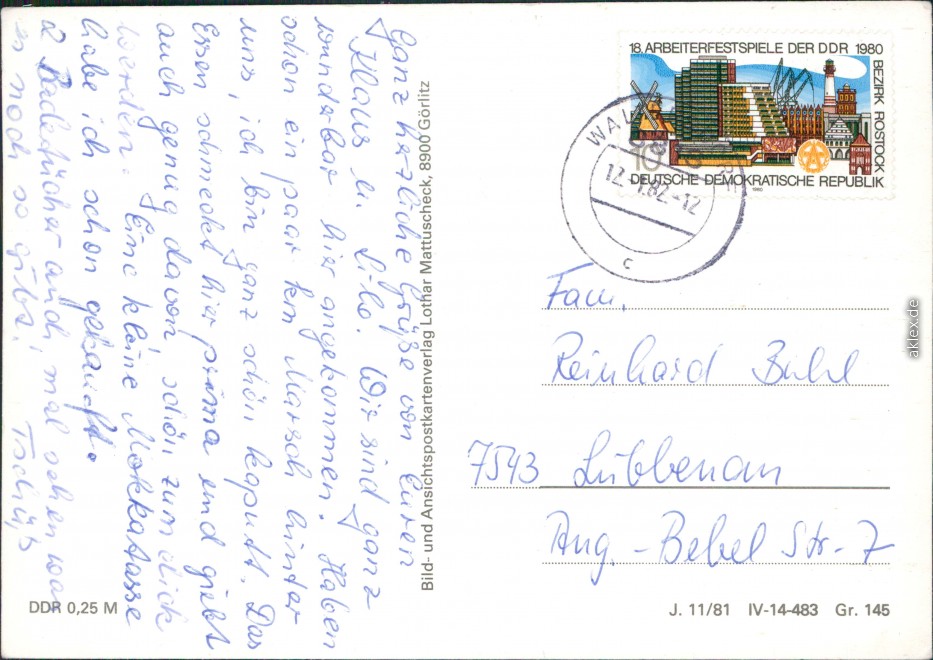 Ganz herzliche Grüße von Euren
Klaus u. Lilo. Wir sind ganz
wunderbar hier angekommen. Haben
schon ein paar km Marsch hinter
uns, ich bin ganz schön kaputt. Das
Essen schmeckt hier prima und giebt
auch genug davon, schön zum dick
werden. Eine kleine Mokkatasse
habe ich schon gekauft.
2 Badetücher auch mal sehen was
es noch so gibt! Tschüß
Bild- und Ansichtspostkartenverlag Lothar Mattuscheck, 8900 Görlitz
DDR 0,25 M
18. ARBEITERFESTSPIELE DER DDR 1980
BEZIRK ROSTOCK
10
DEUTSCHE DEMOKRATISCHE REPUBLIK
1980
WAL
12. 82-12
c
Fam.
Reinhard Buhl
7543 Lübbenau
Aug.-Bebel Str. 7
J. 11/81 IV-14-483 Gr. 145
aklex.de